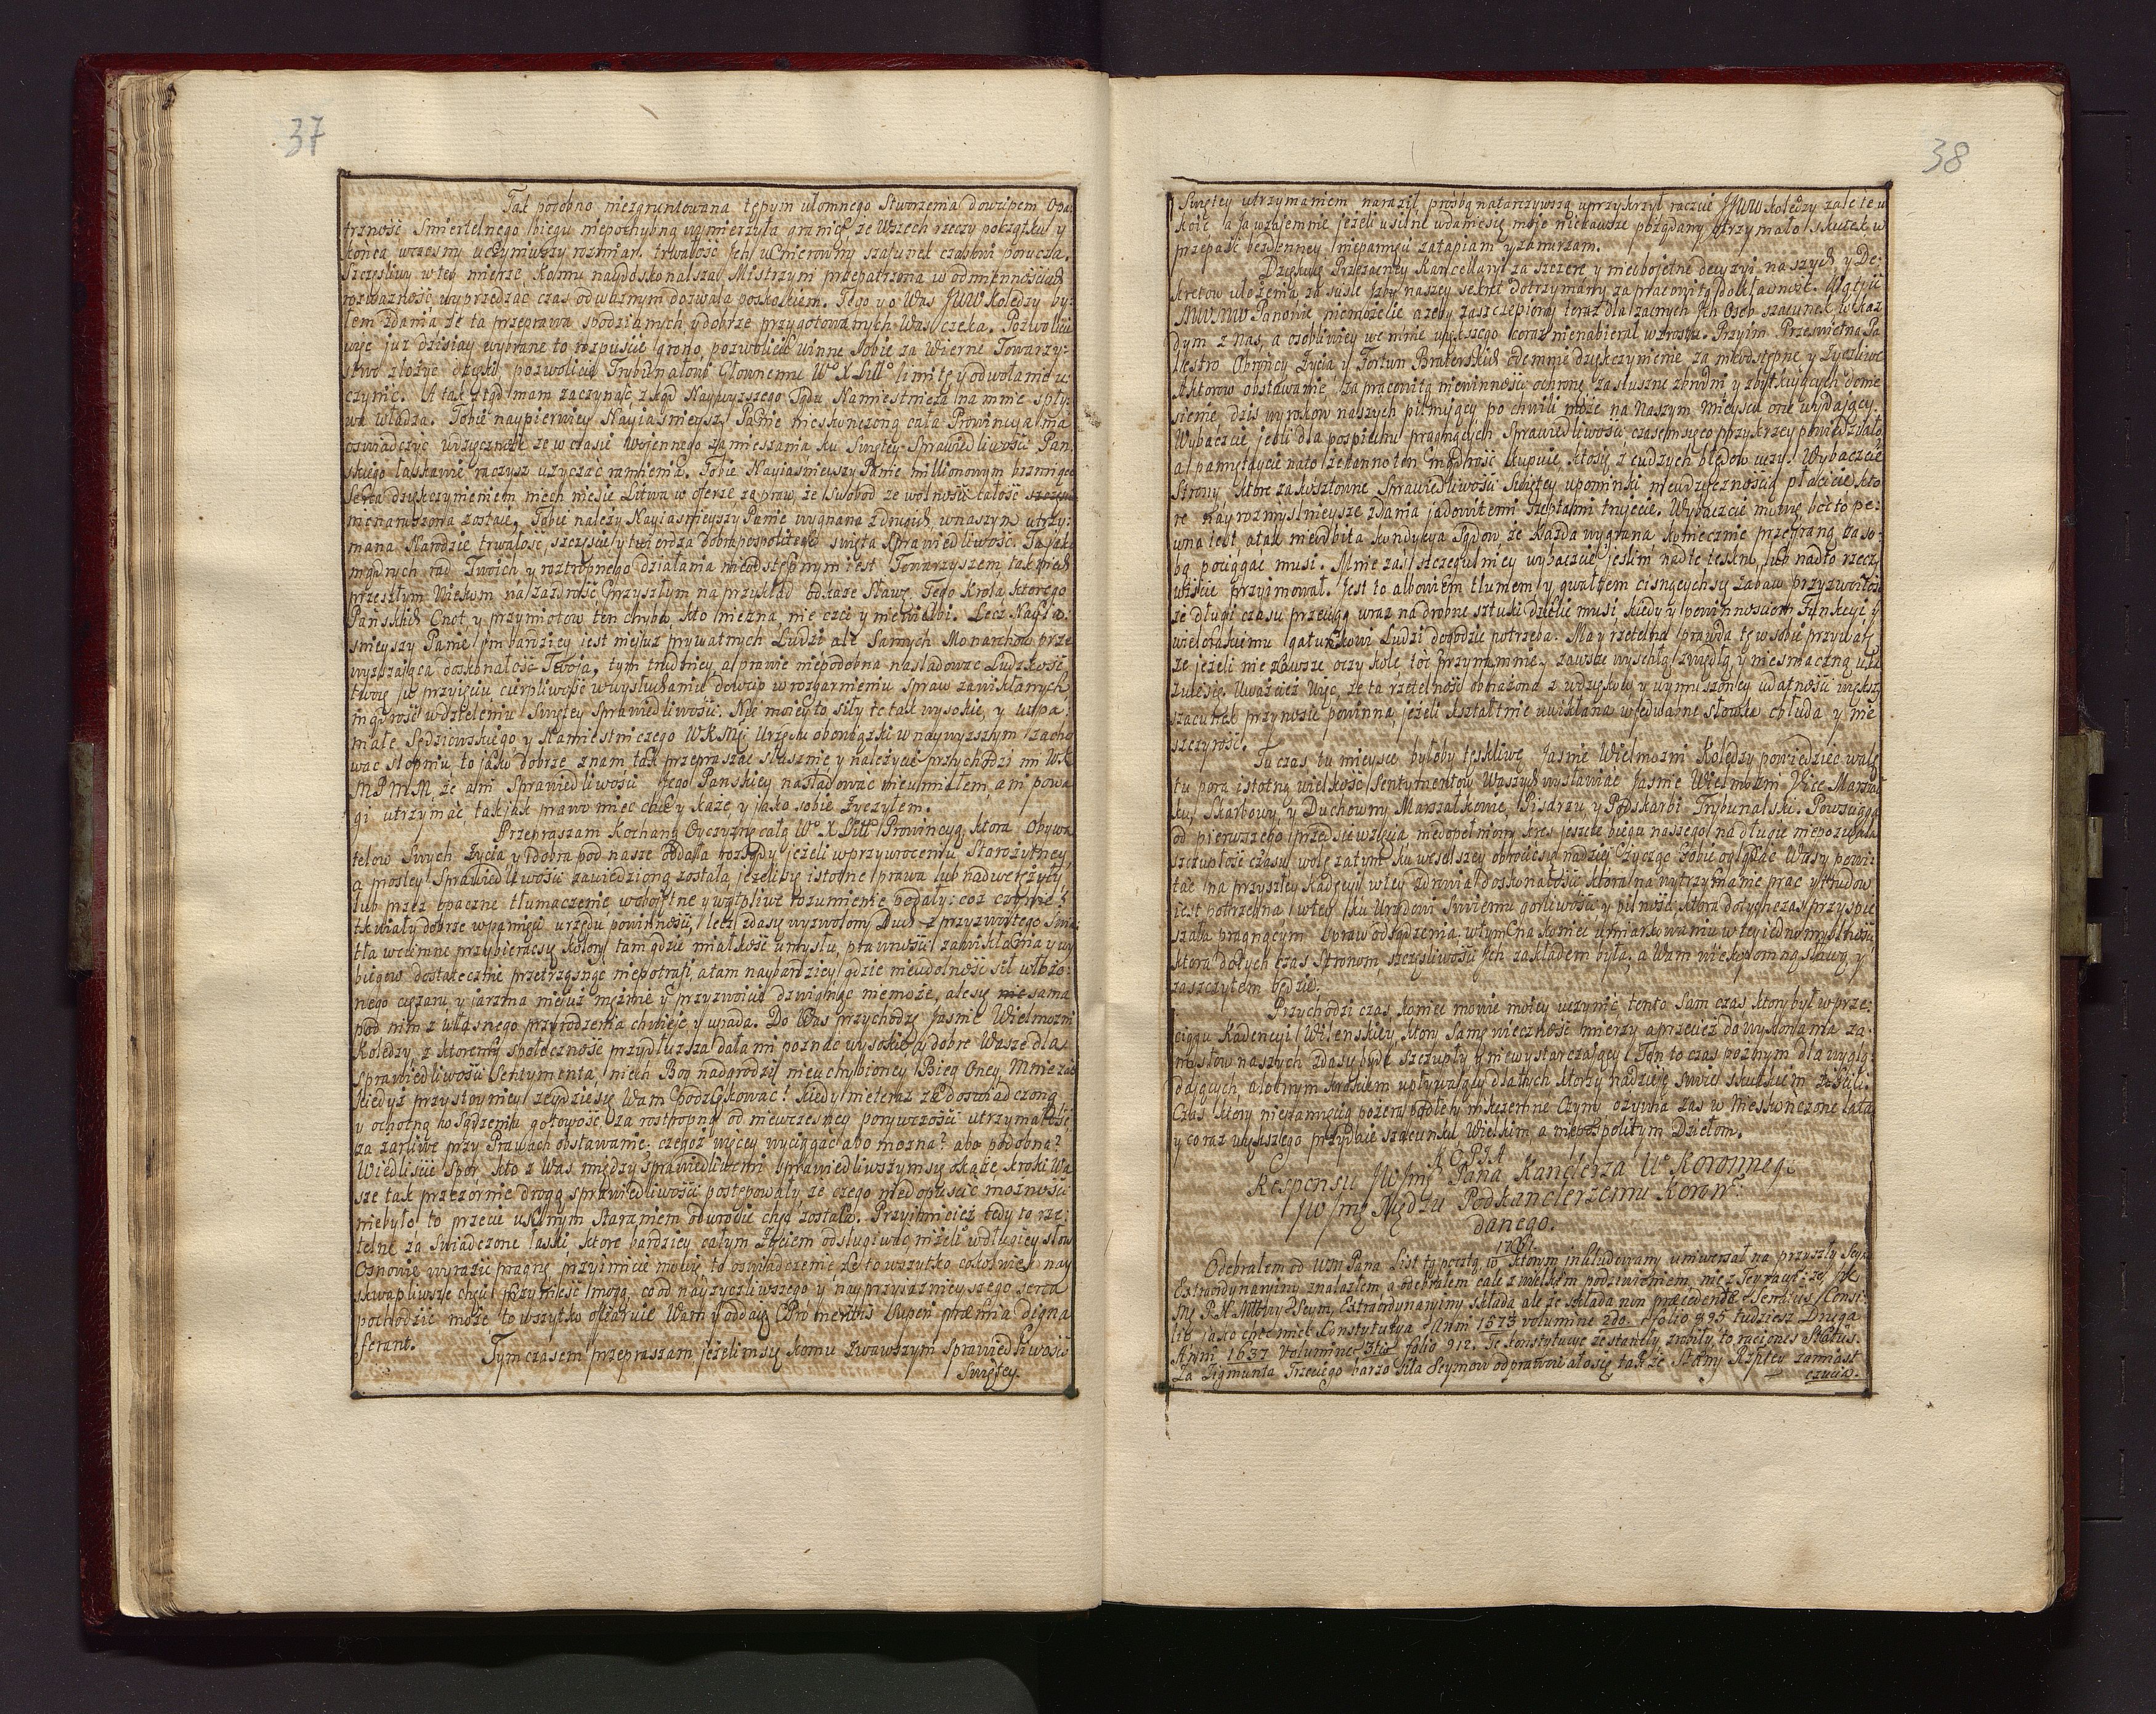 37
Tak podobno niezgruntowana tępym ułomnego Stworzenia dowcipem Opa:
trzność Smiertelnego biegu niepochybną wymierzyła granicę, że Wszech rzeczy początku y
końca wczesny uczyniwszy rozmiar, trwałość Jch y szacunek czasowi porucza.
Szczęsliwy w tey mierze komu naydoskonalszą Mistrzyni przepatrzona w odmiennościach
rozważność wyprzedzać czas odważnym dozwala poskokiem. Tego y o Was JWW Koledzy by:
łem zdania że ta przeprawa spodzianych y dobrze przygotowanych Was czeka. Pozwolcie
więc już dzisiay wybrane to rozpuścić grono, pozwolcie winne Sobie za Wierne Towarzy:
stwo złożyć dzięki, pozwolcie Trybunałowi Głownemu Wo X Litto limitę y odwołanie u:
czynić. A tak ztąd mam zaczynać zkąd Naywyższego Sądu Namiestnicza na mnie spły:
wa władza. Tobie naypierwiey Nayiasnieyszy Panie nieskończoną cała Prowincya ma
oswiadczyć wdzięczność że w czasie Woiennego zamieszania ku Swiętey Sprawiedliwości Pan:
skiego łaskawie raczysz użyczać ramienia. Tobie Nayiasnieyszy Panie millionowym brzmiące
Serca dziękczynieniem niech niesie Litwa w oferze za praw, że Swobod ze wolności całość
nienaruszona zostaie, Tobie należy Nayiasnieyszy Panie wygnana z drugich, w naszym utrzy:
mana Narodzie trwałość, szczęscie y twierdza dobra pospolitego swięta Sprawiedliwość. Ta jak
mądrych rad Twoich y roztropnego działania nieodstępnym iest Towarzyszem, tak niech
przeszłym Wiekom na zazdrość przyszłym na przykład odkaże Sławę Tego Krola, ktorego
Pańskich Cnot y przymiotow ten chyba kto niezna, nie czci y niewielbi. Lecz Nayia:
snieyszy Panie im bardziey iest nieiuż prywatnych Ludzi ale Samych Monarchow prze
wyższaiąca doskonałość Twoja, tym trudniey, a prawie niepodobna nasladować Ludzkość
twoię w przyięciu cierpliwość w wysłuchaniu dowcip w rozgarnieniu Spraw zawikłanych
mądrość w dzieleniu Swiętey Sprawiedliwości. Nie moiey to siły te tak wysokie, y wspa:
niałe Sędziowskiego y Namiestniczego WKMci Urzędu obowiązki w naywyższym zacho
wać stopniu, to jako dobrze znam tak przepraszać słusznie y należycie przychodzi mi WK
M P N M, że ani Sprawiedliwości Jego Panskiey nasladować nieumiałem, ani powa
gi utrzymać, tak jak prawo mieć chce y każe, y jako sobie życzyłem.
Przepraszam Kochaną Oyczyznę całą Wo X Litto Prowincyą, ktora Obywa
telow Swych życia y dobra pod nasze oddała rozsądy, jeżeli w przywroceniu Starożytney
a prostey Sprawiedliwości zawiedzioną została, jeżeliby istotne prawa lub nadwerężyły
lub przez opaczne tłumaczenie, woboiętne y wątpliwe rozumienie podały: coż czynić?
tkwiały dobrze w pamięci urzędu powinności, lecz zdasię wyzwolony Duch z przyzwoitego Swia:
tła w ciemne przybierasię kolory, tam gdzie miałkość umysłu, prawności zawikłania y wy
biegow dostatecznie przetrząsnąć niepotrafi, a tam naybardziey gdzie nieudolność sił włożo:
nego ciężaru, y jarzma nieiuż mężnie y przyzwoicie dzwignąć niemoże, ale się sama
pod nim z własnego przyrodzenia chwieie y upada. Do Was przychodzę Jasnie Wielmożni
Koledzy z ktoremi społeczność przydłuższa dała mi poznać wysokie, y dobre Wasze dla
Sprawiedliwości Sentymenta, niech Bog nadgrodzi nieuchybioney Bieg Oney. Mnie zaś
kiedyż przystoyniey zeydziesię Wam podziękować? kiedy nieteraz za doswiadczoną
y ochotną ku Sądzeniu gotowość, za rostropną od niewczesney porywczości utrzymałość,
za żarliwe przy Prawach obstawanie, czegoż więcey wyciągać abo można? abo podobna?
Wiedliście Spor, kto z Was między sprawiedliwemi sprawiedliwszymsię okaże, kroki Wa
sze tak przezornie drogą sprawiedliwości postępowały, że czego niedopuścić możności
niebyło, to przecie usilnym staraniem odwrocić chęć została. Przyimcieiż tedy to rze:
telne za Swiadczone łaski, ktore bardziey całym życiem odsługiwać, niżeli w długiey słow
Osnowie wyrazić pragnę, przyimcie mowię to oswiadczenie, że to wszytko cokolwiek nay
skwapliwsze chęci przynieść mogą, co od nayżyczliwszego y nayprzyiaznieyszego serca
pochodzić może to wszytko ofiaruię Wam y oddaię Pro meritis Superi præmia digna
ferant.
Tymczasem przepraszam, jeżelimsię komu żwawszym Sprawiedliwości
Swiętey.
38
Swiętey utrzymaniem naraził, prośbą natarczywszą uprzykrzył raczcie JJWW Koledzy żale te u
koić, a Ja wzajemnie jeżeli usilne wdaniesię moje niezawsze pożądany otrzymało skutek w
przepaść bezdenney niepamięci zatapiam y zanurzam.
Dziękuię Przezacney Kancellaryi za szczere y nieoboiętne decyzyi naszych y De:
kretow ułożenia, za scisłe Jzby naszey sekret dotrzymany, za pracowitą dokładność.
JWWMM Panowie niemożecie, ażeby zaszczepiony teraz dla zacnych Jch Osob szacunek w każ
dym z nas, a osobliwiey we mnie, większego coraz nienabierał wzrostu. Przyim Przeswietna Pa
lestro Obrońcy Życia y Fortun Braterskich odemnie dziękczynienie, za nieodstępne y życzliwe
Aktorow obstawanie, za pracowitą niewinności ochronę, za słuszne zbrodni y zbytkuiących donie
sienie, dziś wyrokow naszych pilnuiący, po chwili może na Naszym Mieyscu one wydaiący.
Wybaczcie, jeśli dla pospiechu pragnących Sprawiedliwości czasemsięco przykrzey powiedziało,
a pamiętaycie na to, że tanno ten mądrość kupuie, ktosię z cudzych błędow uczy. Wybaczcie
Strony, ktore za kosztowne Sprawiedliwości Swiętey upominki niewdzięcznością płacicie, kto
re nayrozmyslnieysze zdania jadowitemi szeptami truiecie. Wybaczcie mowię, boć to pe:
wna iest, a tak nieodbita kondycya Sądow, że każda wygrana koniecznie przegraną za so:
bą pociągać musi. Mnie zaś szczegulniey wybaczcie, jeslim nadto teskno, lub nadto rzecz
wiscie przyimował. Jest to albowiem tłumem y gwałtem cisnących się zabaw przyzwoitość
że długi czasu przeciąg wraz na drobne sztuki dzielić musi, kiedy y powinnościom Funkcyi y
wielorakiemu gatunkowi Ludzi dogodzić potrzeba. May rzetelna prawda tę w sobie przywarę
że jeżeli nie zawsze oczy kole, toć przynaymniey zawsze wyschłą, zwiędłą, y niesmaczną uka
zuiesię. Uważcież więc, że ta rzetelność obnażona z wdzięków y wymuszoney udatności większy
szacunek przynosić powinna, jeżeli kształtnie uwikłana w jedwabne słowka obłuda y nie
szczyrość.
Ta czas, tu mieysce byłoby teskliwe Jasnie Wielmożni Koledzy powiedzieć wale
tu pora istotną wielkość Sentymentow Waszych wysławiać Jasnie Wielmożni Vice Marszał
ku, Skarbowy, y Duchowny Marszałkowie, Pisarzu, y Podskarbi Trybunalski. Powsciąga
od pierwszego przedsięwzięcia niedopełniony kres jeszcze biegu naszego, na długie niepozwala
szczupłość czasu, wolę zatym ku weselszey obrocićsię nadziei, życząc sobie oglądać Wasz powi:
tać na przyszłey Kadęcyi w tey zdrowia doskonałości, ktora na wytrzymanie prac y trudow
iest potrzebna, w tey ku Urzędowi Swiemu gorliwości y pilności, ktora dotychczas przyspie
szała pragnącym Spraw odsądzenia, w tym na koniec umiarkowaniu, w tey iednomyslności
ktora dotych czas Stronom, szczęsliwości Jch zakładem była, a Wam wiekopomną sławą y
zaszczytem będzie.
Przychodzi czas koniec mowie moiey uczynić, tento Sam czas ktory był w prze:
ciągu Kadencyi Wilenskiey, ktory Samę wieczność mierzy, a przecież do wykonania za:
mysłow naszych zdasię być szczupły y niewystarczaiący. Ten to czas poznym dla wyglą:
daiących, a lotnym krokiem upływaiący dla tych, ktorzy nadzieię swoię skutkiem
Czas, ktory niepamięcią pożera podłe y nikczemne Czyny, ożywia zas w Nieskończone lata
y coraz większego przydaie szacunku Wielkim, a niepospolitym Dziełom.
KOPIA
Responsu JWJmci Pana Kanclerza Wo Koronnego
JWJmci Xiędzu Podkanclerzemu Koronn:
danego.
1761.
Odebrałem od WM Pana List tą pocztą, w ktorym inkludowany uniwersał na przyszły Seym
Extraordynaryiny znalazłem, a odebrałem cale z wielkim podziwieniem, nie z tey racyi, że Kro
My P. N. Mlłćiwy Seym Extraordynaryiny składa, ale że składa non præcedente Senatus Consi:
lio, jako chce mieć Konstytucya Anni 1573 volumine 2do folio 895 tudziesz Druga
Anni 1637 Volumine 3tio folio 912. Te konstytucye że stanęły zrobiły to raciones Status.
Za Zigmunta Trzeciego barzo siła Seymow odprawowałosię, także Stany Rzptey zamiast
czucia.